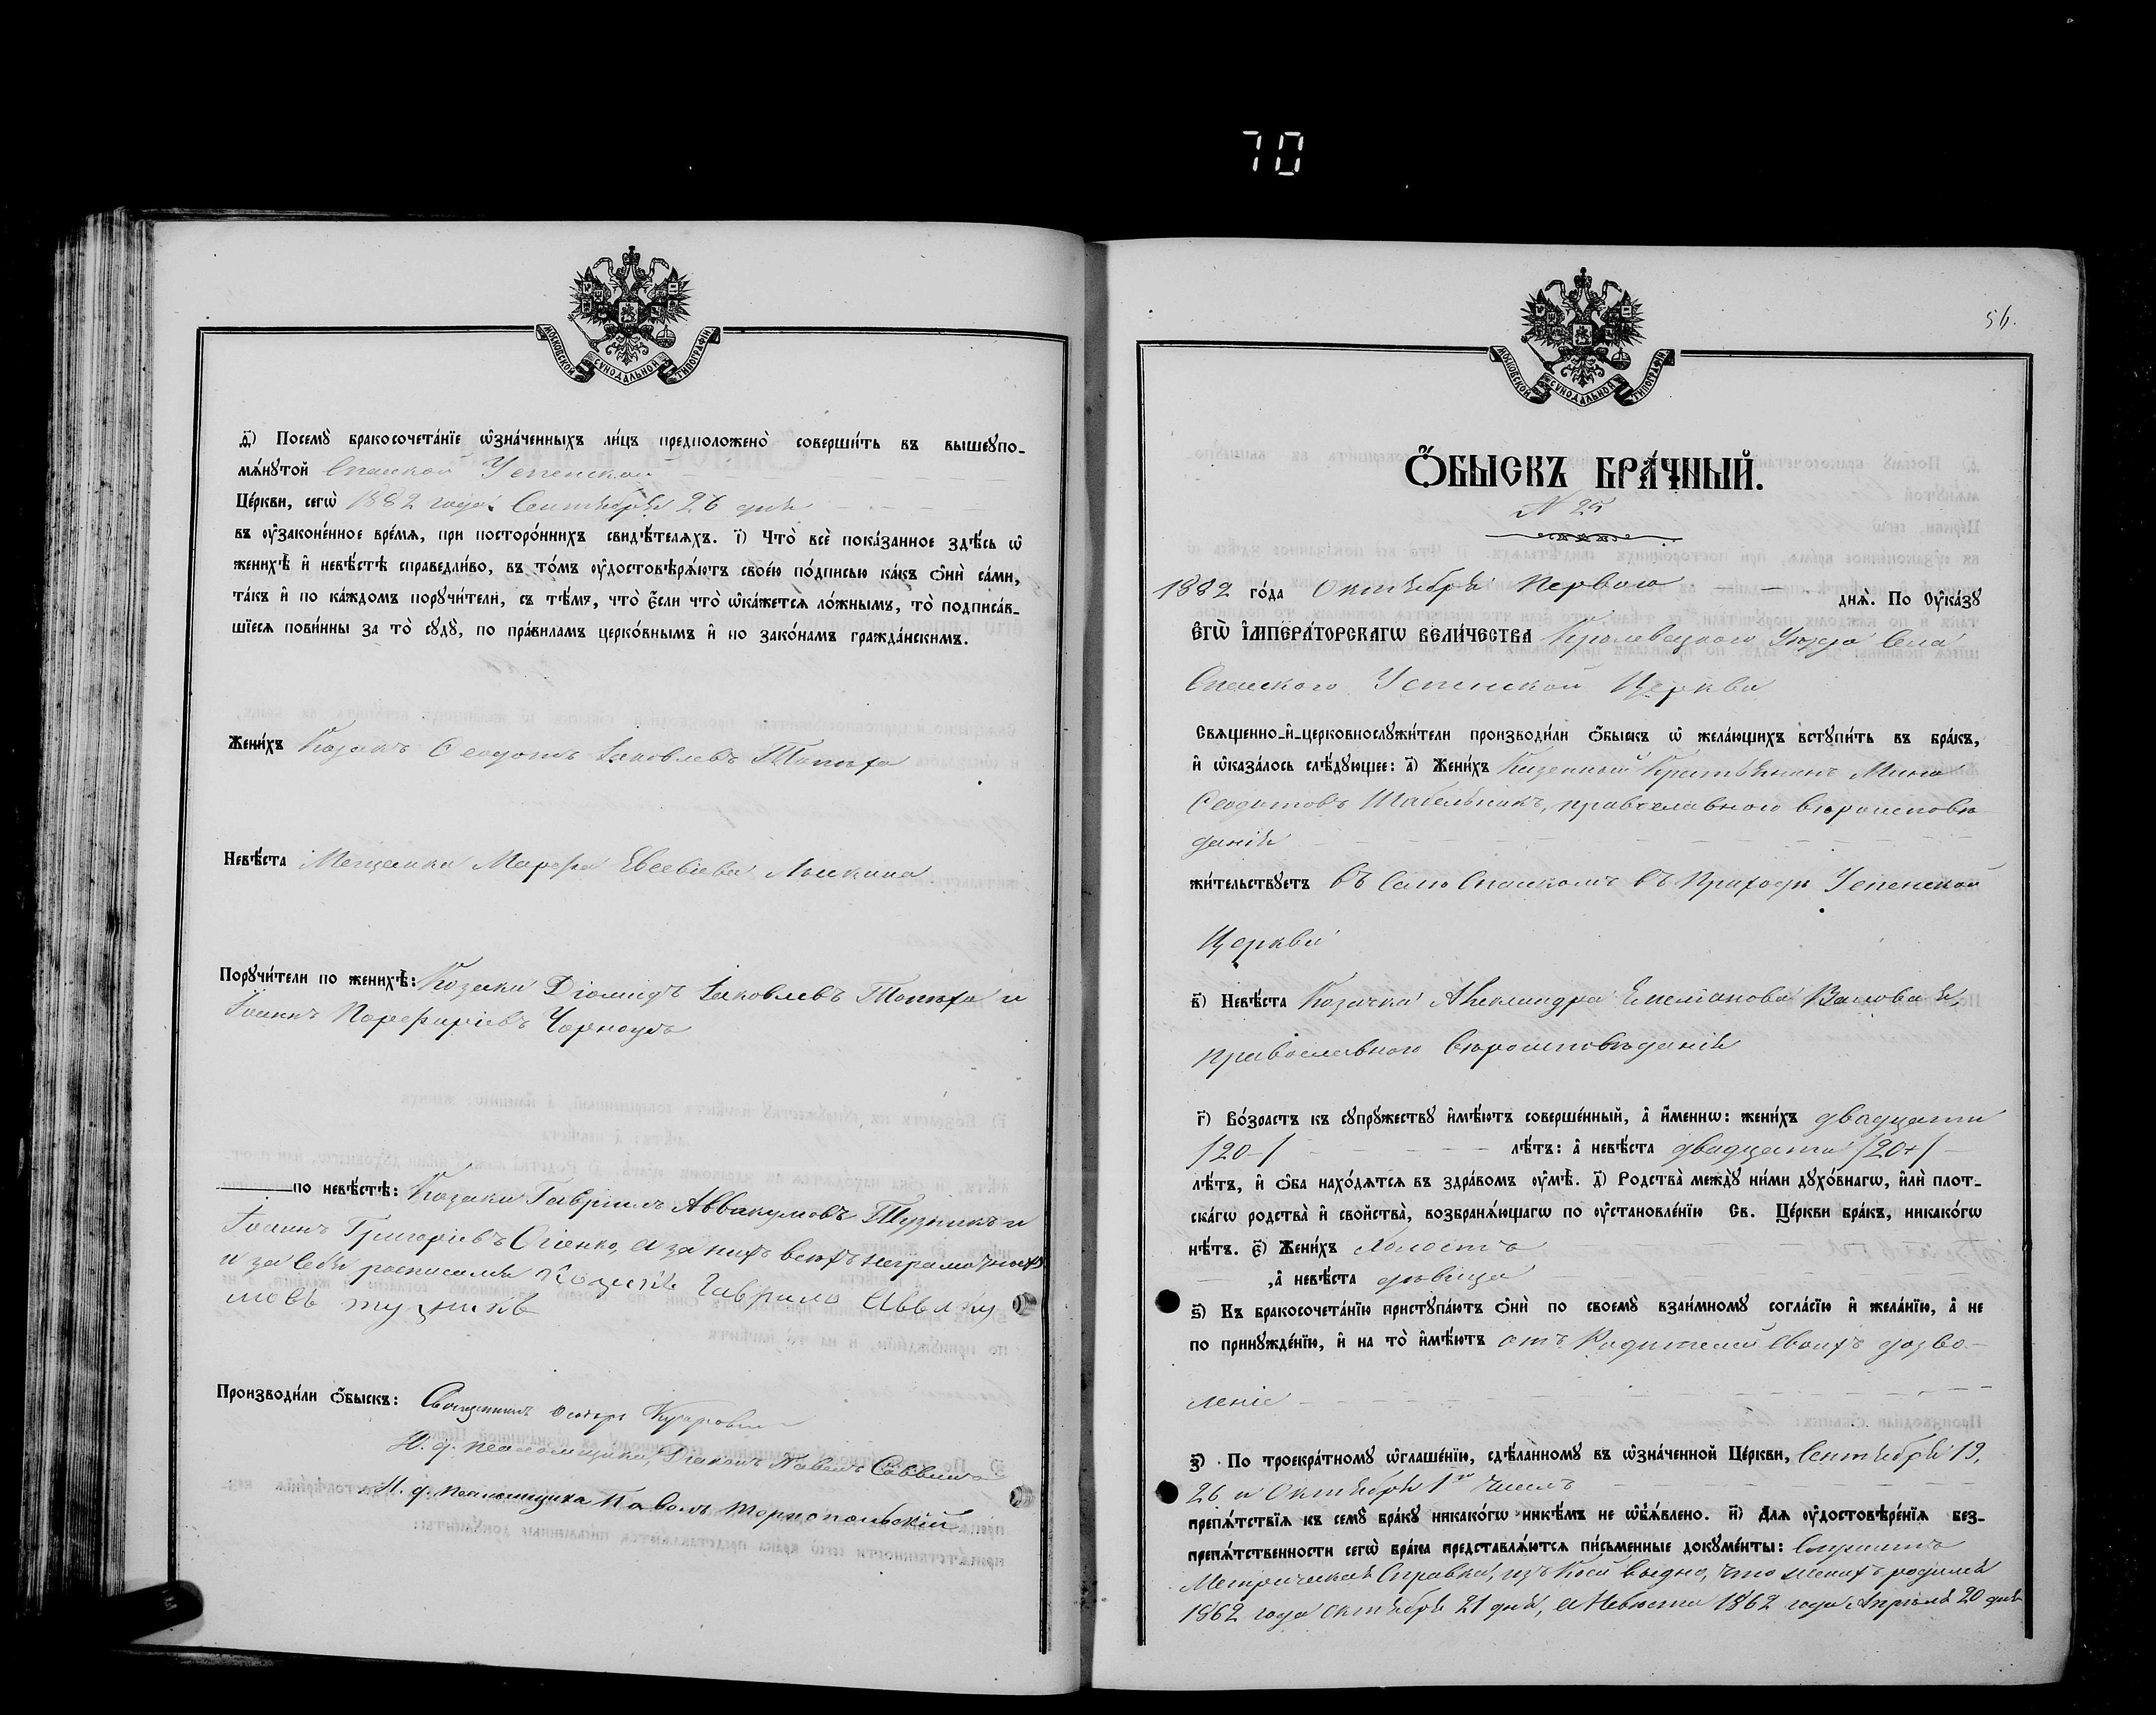 70
МОСКОВСКОЙ СѴНОДАЛЬНОЙ ТИПОГРАФІИ
д҃і) Посемꙋ̀ бракосочета́нїе ѡ҆зна́ченныхъ ли́цъ предположено̀ соверши́ть въ вышеꙋпо-
мѧ́нꙋтой Спаской Успенской
Це́ркви, сегѡ̀ 1882 года Сентября 26 дня
въ ᲂу҆законе́нное вре́мѧ, при посторо́ннихъ свидѣ́телѧхъ. і҃) Что̀ всѐ пока́занное здѣ́сь ѡ҆
женихѣ̀ и҆ невѣ́стѣ справедли́во, въ то́мъ ᲂу҆достовѣрѧ́ютъ свое́ю по́дписью ка́къ ѻ҆нѝ са́ми,
та́къ и҆ по ка́ждомъ порꙋчи́тели, съ тѣ́мъ, что̀ є҆́сли что̀ ѡ҆ка́жетсѧ ло́жнымъ, то̀ подписа́в-
шїесѧ пови́нны за то̀ сꙋдꙋ̀, по пра́виламъ церко́внымъ и҆ по зако́намъ гражда́нскимъ.
Жени́хъ Козакъ Ѳеодотъ Іаковлевъ Топиха
Невѣ́ста Мещанка Марѳа Евсевіева Лыскина
Порꙋчи́тели по женихѣ̀: Козаки Діомидъ Іаковлевъ Топиха и
Іоаннъ Порфиріевъ Черноусъ
по невѣ́стѣ: Козаки Гавріилъ Аввакумовъ Тузникъ и
Іоаннъ Григоріевъ Огіенко, а за нихъ всѣхъ неграмотныхъ
и за себя росписался Козакъ Гаврило Авваку
мовъ тузникъ
Производи́ли ѻ҆́быскъ: Священникъ
И. д. псаломщика, Діаконъ Павелъ Саввинъ
И. д. псаломщика Павелъ Тернопольскій
56.
МОСКОВСКОЙ СѴНОДАЛЬНОЙ ТИПОГРАФІИ
Ѻ҆́БЫСКЪ БРА́ЧНЫЙ.
N 25
1882 го́да Октября Перваго днѧ̀. По Оу҆ка́зꙋ
Є҆ГѠ̀ И҆МПЕРА́ТОРСКАГѠ ВЕЛИ́ЧЕСТВА Кролевецкого Уѣзда Села
Спаского Успенской Церкви
Свѧщенно-и҆-церковнослꙋжи́тели производи́ли ѻ҆́быскъ ѡ҆ жела́ющихъ встꙋпи́ть въ бра́къ,
и҆ ѡ҆каза́лось слѣ́дꙋющее: а҃) Жени́хъ Казенный Крестьянинъ Мина
Ѳеодотовъ Шабельникъ, православного вѣроисповѣ
данія
жи́тельствꙋетъ въ Селѣ Спаскомъ въ Приходѣ Успенской
Церкви
в҃) Невѣ́ста Козачка Александра Емеліанова
православного вѣроисповѣданія
г҃) Во́зрастъ къ сꙋпрꙋ́жествꙋ и҆мѣ́ютъ соверше́нный, а҆ и҆́менно: жени́хъ двадцати
/20-/ лѣ́тъ: а҆ невѣ́ста двадцати /20+/
лѣ́тъ, и҆ ѻ҆́ба нахо́дѧтсѧ въ здра́вомъ ᲂу҆мѣ̀. д҃) Родства̀ междꙋ̀ ни́ми дꙋхо́внагѡ, и҆лѝ плот-
ска́гѡ родства̀ и҆ сво́йства, возбранѧ́ющагѡ по ᲂу҆становле́нїю Св. Це́ркви бра́къ, никако́гѡ
нѣ́тъ. є҃) Жени́хъ Холостъ
, а҆ невѣ́ста дѣвица
ѕ҃) Къ бракосочета́нїю пристꙋпа́ютъ ѻ҆нѝ по своемꙋ̀ взаи́мномꙋ согла́сїю и҆ жела́нїю, а҆ не
по принꙋжде́нїю, и҆ на то̀ и҆мѣ́ютъ отъ Родителей своихъ дозво-
леніе
з҃) По троекра́тномꙋ ѡ҆глаше́нїю, сдѣ́ланномꙋ въ ѡ҆зна́ченной Це́ркви, Сентября 19,
26 и Октября 1го чиселъ
препѧ́тствїѧ къ семꙋ̀ бра́кꙋ никако́гѡ никѣ́мъ не ѡ҆б̾ѧ́влено. и҃) Длѧ ᲂу҆достовѣре́нїѧ без-
препѧ́тственности сегѡ̀ бра́ка представлѧ́ютсѧ пи́сьменные докꙋме́нты: Служитъ
Метрическая Справка, изъ коей видно, что женихъ родился
1862 года Октября 21 дня, а Невѣста 1862 года Апрѣля 20 дня